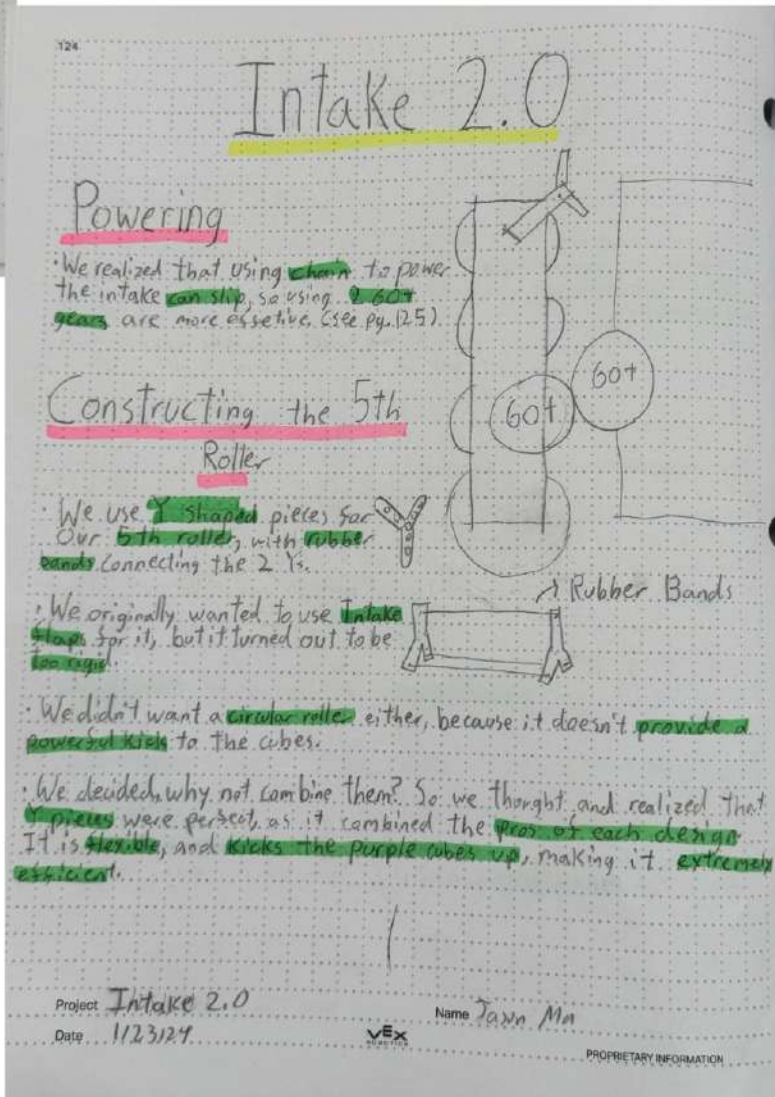 124
Intake 2.0
Powering
· We realized that using chain to power
the intake can slip, so using 2 60t
gears are more effetive. (see pg. 125)
60t
60t
Constructing the 5th
Roller
· We use Y shaped pieces for
Our 5th roller, with rubber
bands connecting the 2 Ys.
Rubber Bands
· We originally wanted to use Intake
flaps for it, but it turned out to be
too rigid.
· We didn't want a circular roller either, because it doesn't provide a
powerful kick to the cubes.
· We decided, why not combine them? So we thought and realized that
Y pieces were perfect, as it combined the pros of each design.
It is flexible, and kicks the purple cubes up, making it extremely
efficient.
Project Intake 2.0
Name
Date 1/23/24
VEX
ROBOTICS
PROPRIETARY INFORMATION